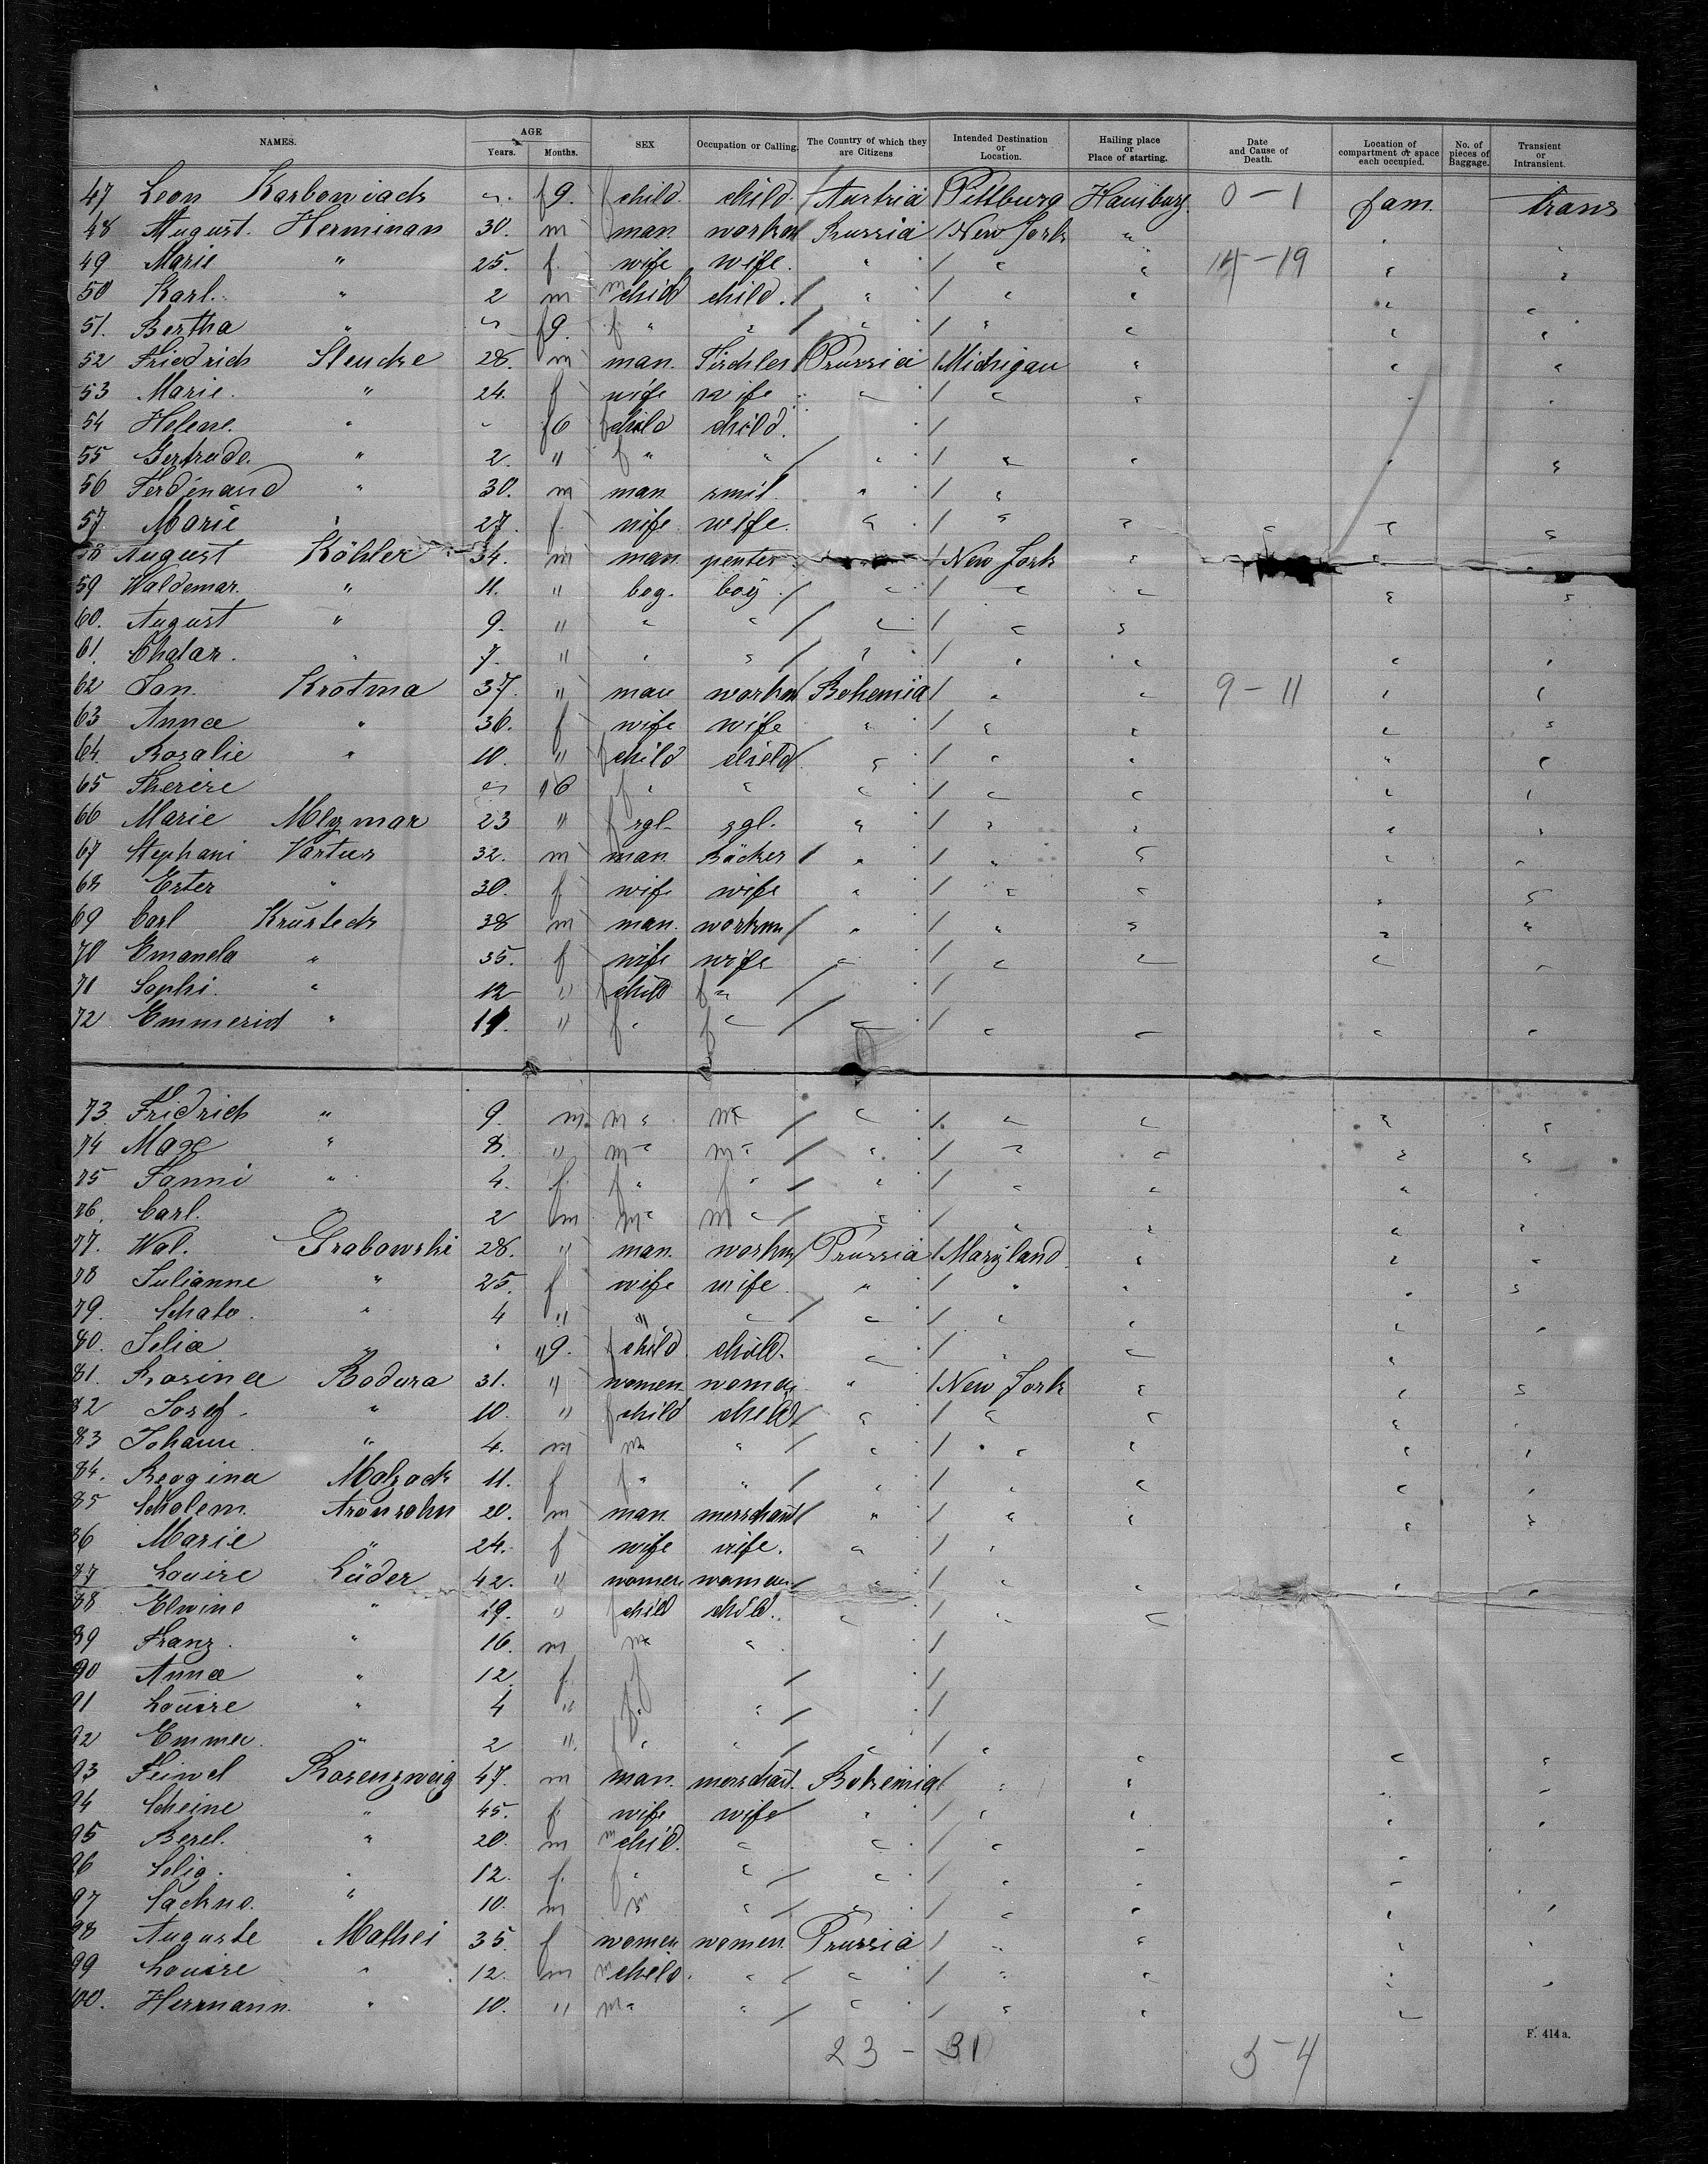 NAMES. AGE Years. Months. SEX Occupation or Calling. The Country of which they are Citizens Intended Destination or Location. Hailing place or Place of starting. Date and Cause of Death. Location of compartment or space each occupied. No. of pieces of Baggage. Transient or Intransient.
47 Leon Karbowiack " f 9. f child. child. / Austria / Pittburg Hamburg. 0-1 fam. trans
48 August. Herminan 30. m man workm Russia / New York "
49 Marie " 25. f. wife wife. " / " " 14-19 " "
50 Karl. " 2 m m child child. / " / " " " "
51. Bertha " " f 9. f " " / " / " " " "
52 Friedrich Steucke 28. m man. Tischler Prussia / Michigan " " "
53 Marie. " 24. f wife wife " / " " " "
54 Helene. " " f 6 f child child. /
55 Gertrude. " 2. " f " " / " / " " " "
56 Ferdinand " 30. m man smit. " / "
57 Marie " 27. f. wife. wife. " / " " " " "
58 August Köhler 34. m man penter / New York " "
59 Waldemar. " 11. " boy. boy / " / " " " "
60. August " 9. " " " / " / " "
61. Chalar. " 7. " " " / " / " " " "
62 Jan. Krotma 37. " man workm Bohemia / " " 9-11 " "
63 Anna " 36. f wife wife " / " " " "
64. Rosalie " 10. " f child child / " / " " " "
65 Therese " " 6 f " " " / " " " "
66 Marie Mlymar 23 " f sgl- sgl. " / " " " "
67 Stephani Vartus 32. m man. Bäcker / " / " " " "
68 Ester " 30. f wife wife " / " " " "
69 Carl Krusteck 38 m man. workm / " / " " " "
70 Emanela " 35. f wife wife " / " " " "
71 Sophi. " 12 " f child f " / /
72 Emmerid " 11. " f " f " / " / " " " "
73. Fridrich " 9. m. m " m " / " / " " " "
74 Max " 8. " m " m " / " / " " " "
75 Fanni " 4. f. f " f " / " / " " "
76. Carl. " 2 m m " m " / " / " " " "
77. Wal. Grabowski 28. " man. workm / Prussia / Maryland. " " "
78 Julianne " 25. f wife wife. " / " " " "
79. Schato. " 4 " " " / " / " " " "
80. Felia " " 9. f child. child. " / " " "
81. Rosina Badura 31. " women woman " / New York " " "
82 Josef. " 10. " f child child / " / " " " "
83 Johann. " 4. m m " " / " / " " " "
84. Reogina Malzack 11. f f " " / " / " " " "
85 Scholem. Aronsohn 20. m man. merschant / " / " " " "
86 Marie " 24. f wife wife. " / "
87 Louise Lüder 42. " women woman / " / " " " "
88 Elwine " 19. " f child child. " / " "
89 Franz. " 16. m m " " /
90 Anna " 12. f. f / /
91 Louise " 4 " f " " / /
92 Emma. " 2 " " " / " / " " " "
93 Feiwel Rosenzweig 47. m man. merschant. Bohemia / " " "
94 Scheine " 45. f. wife wife " / " " " "
95 Berel. " 20. m m child. " " / " " "
96 Selig. " 12. f. f " " / " / " " "
97 Sachne. " 10. m m " / " " " "
98 Auguste Mathei 35. f women women. Prussia / " " " "
99 Louise " 12. m m child. " / " / " " " "
100. Herrmann. " 10. " m " " / " / " " "
23 - 31 5-4
F. 414 a.